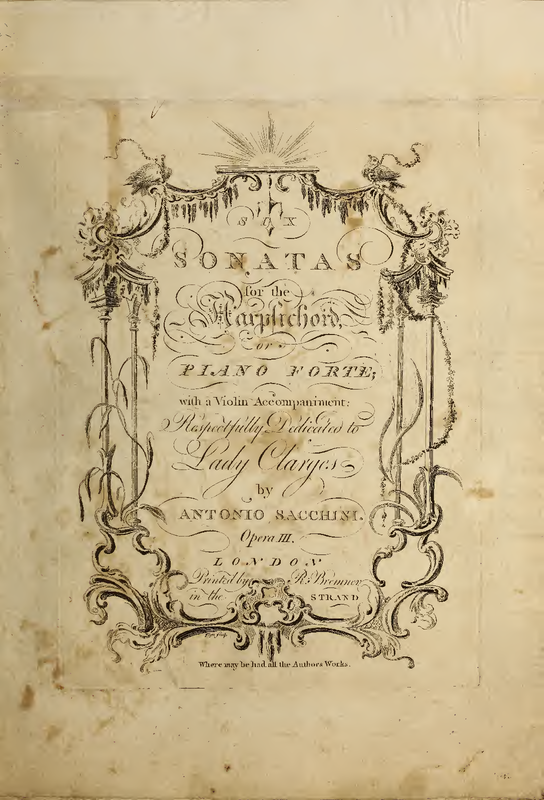 SIX
SONATAS
for the
Harpsichord,
or
PIANO FORTE;
with a Violin Accompaniment:
Respectfully Dedicated to
Lady Clarges
by
ANTONIO SACCHINI.
Opera III.
LONDON
Printed by R. Bremner
in the STRAND
Where may be had all the Authors Works.